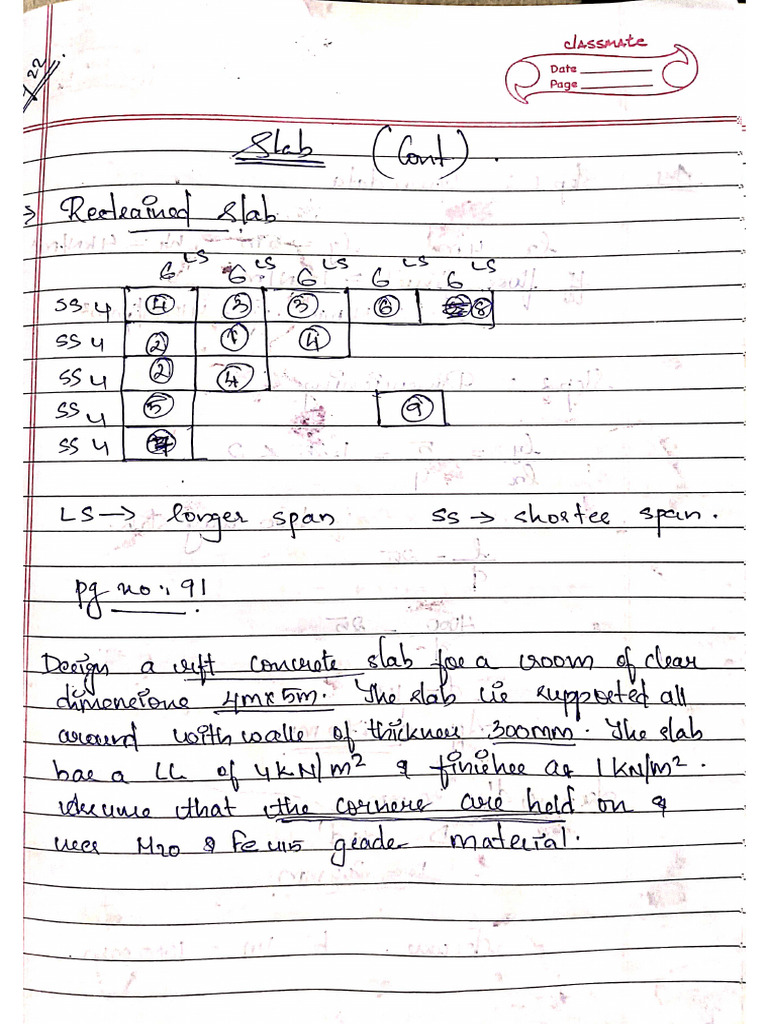 classmate
Date
Page
22
Slab (Cont).
Restrained slab
6 LS 6 LS 6 LS 6 LS 6 LS
SS 4 4 3 3 6 8
SS 4 2 1 4
SS 4 2 4
SS 4 5 9
SS 4
LS → longer span SS → shorter span.
Pg no: 91
Design a rift concrete slab for a room of clear
dimensions 4m x 5m. The slab is supported all
around with walls of thickness 300mm. The slab
has a LL of 4kN/m² & finishes as 1kN/m².
Assume that the corners are held on &
uses M20 & Fe 415 grade material.